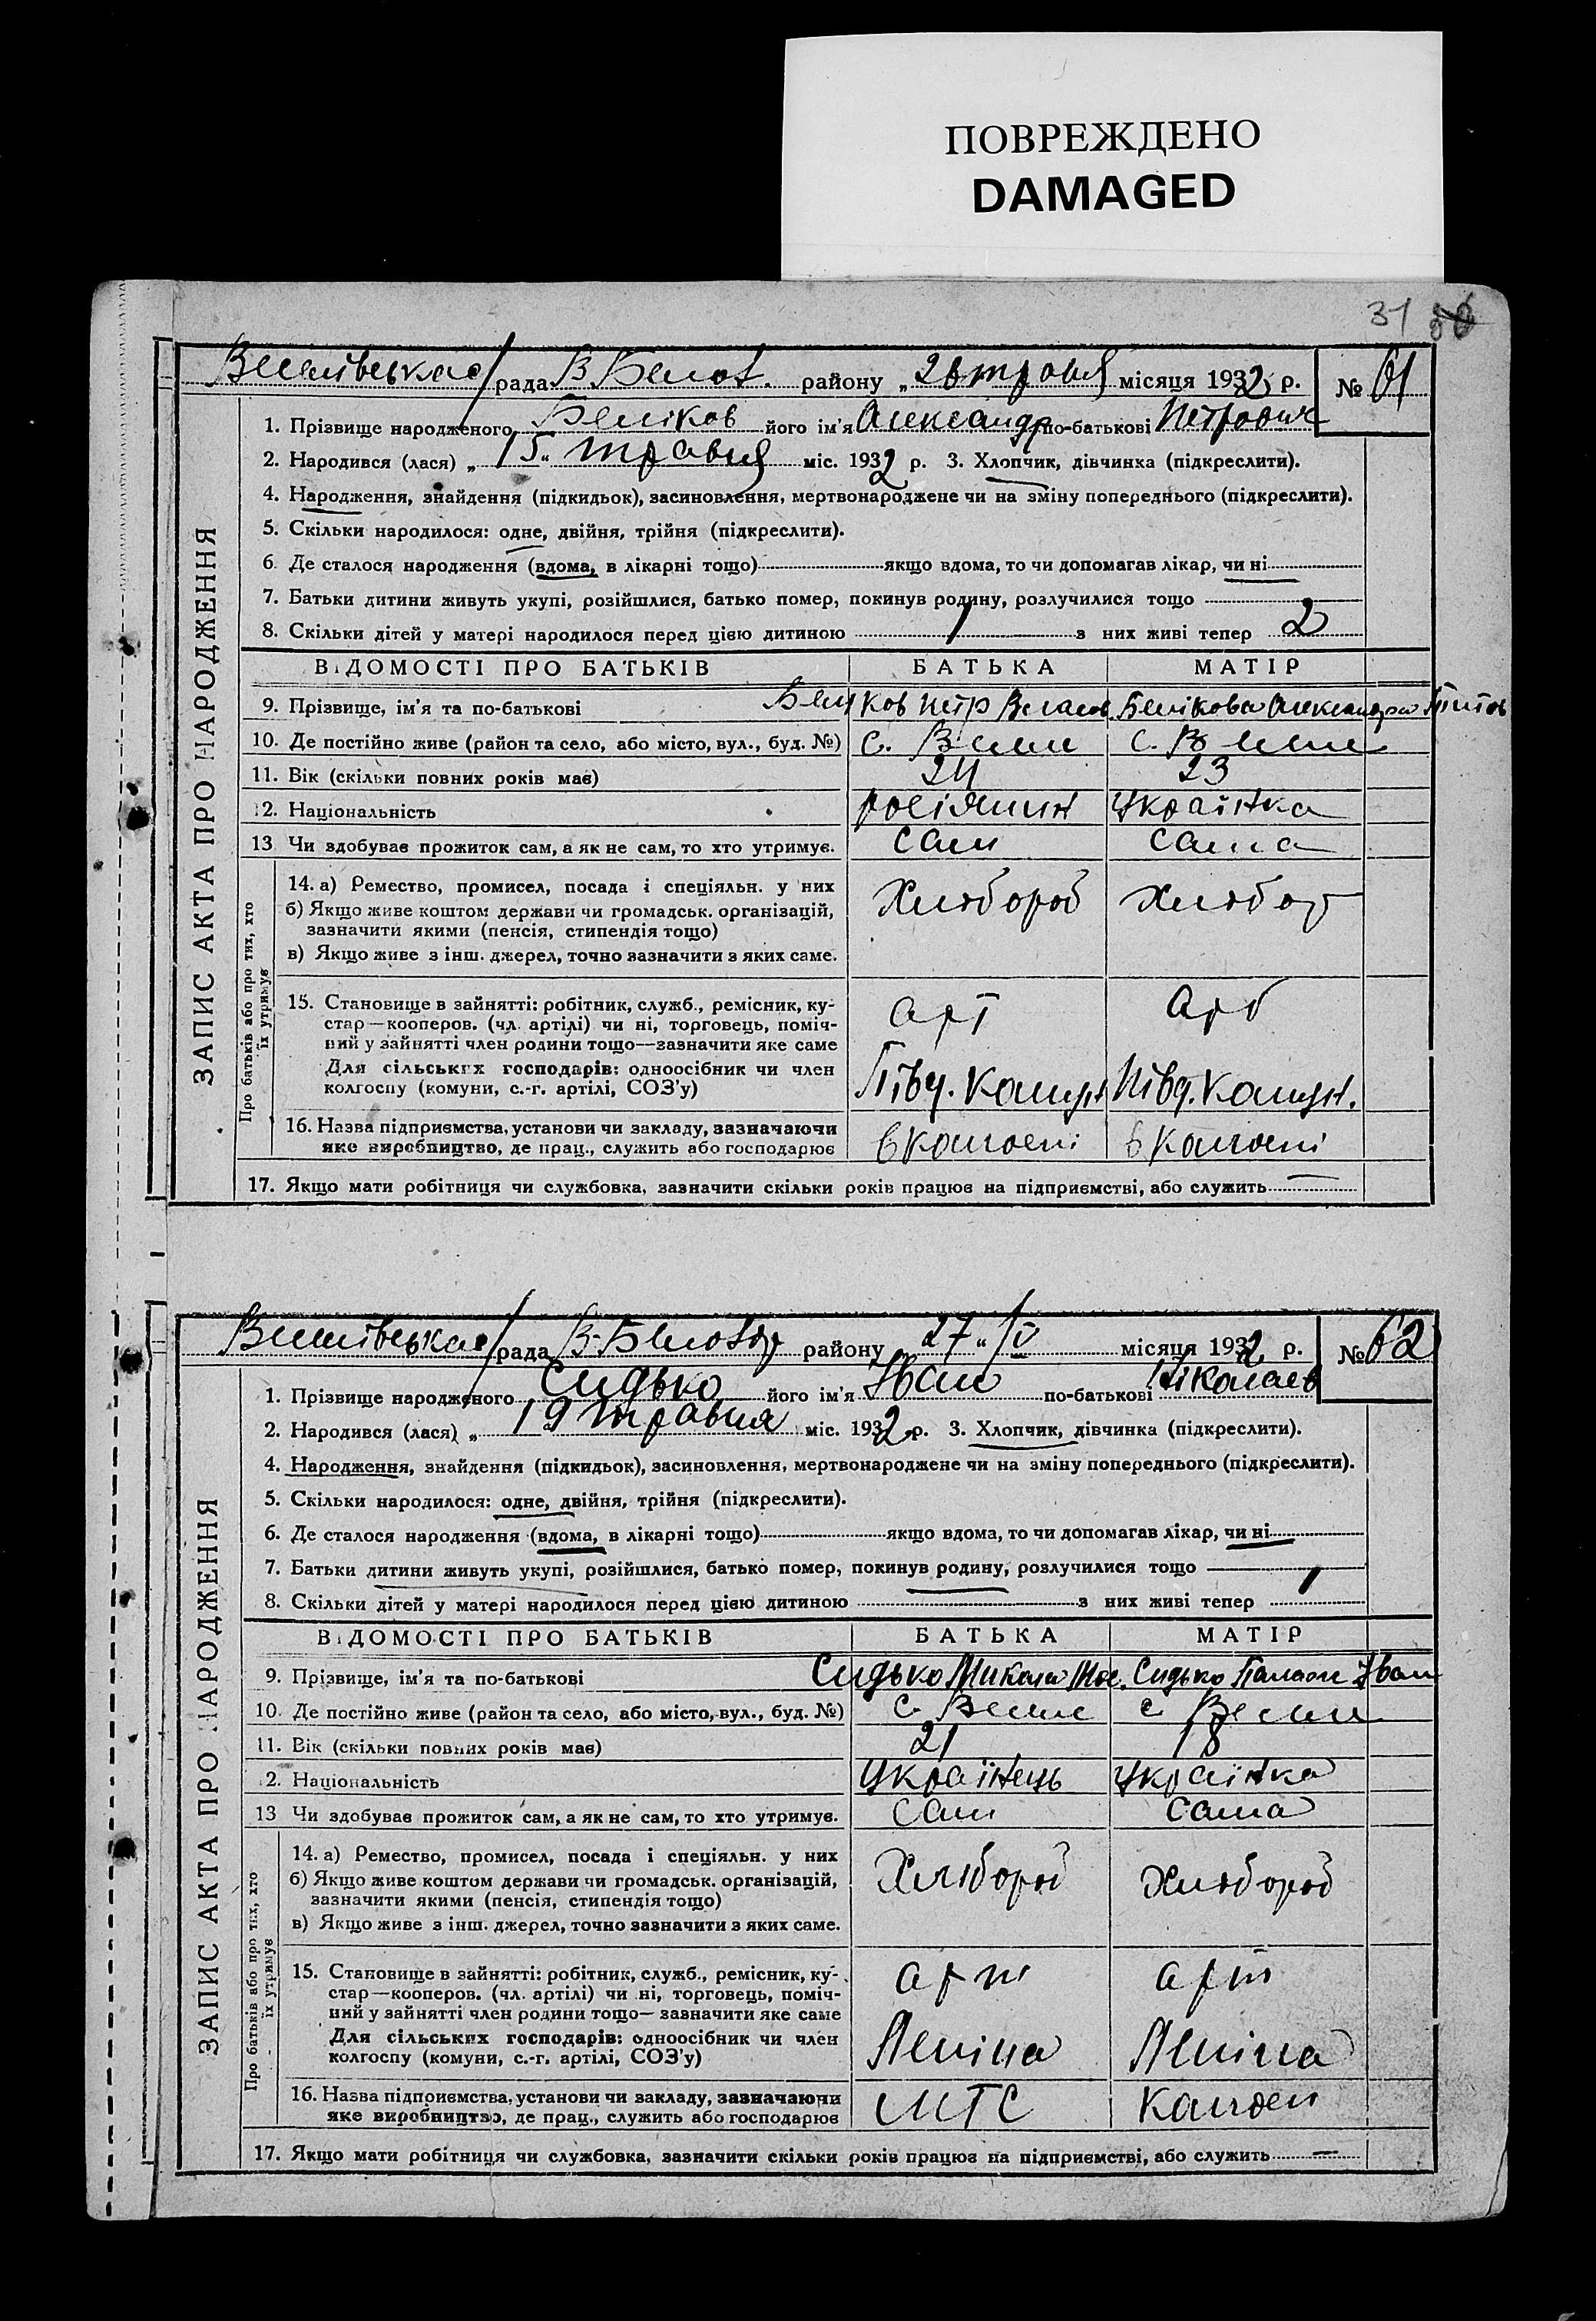 ПОВРЕЖДЕНО
DAMAGED
31
ЗАПИС АКТА ПРО НАРОДЖЕННЯ
рада В Белоз. району „26 травня місяця 1932 р. № 61
1. Прізвище народженого Беліков його ім'я Александр по-батькові Петрович
2. Народився (лася) „15" травня міс. 1932 р. 3. Хлопчик, дівчинка (підкреслити).
4. Народження, знайдення (підкидьок), засиновлення, мертвонароджене чи на зміну попереднього (підкреслити).
5. Скільки народилося: одне, двійня, трійня (підкреслити).
6. Де сталося народження (вдома, в лікарні тощо) якщо вдома, то чи допомагав лікар, чи ні
7. Батьки дитини живуть укупі, розійшлися, батько помер, покинув родину, розлучилися тощо
8. Скільки дітей у матері народилося перед цією дитиною 1 з них живі тепер 2
ВІДОМОСТІ ПРО БАТЬКІВ БАТЬКА МАТІР
9. Прізвище, ім'я та по-батькові Беліков Петр Власов. Белікова Александра
10. Де постійно живе (район та село, або місто, вул., буд. №) с. с.
11. Вік (скільки повних років має) 24 23
12. Національність росіянин Українка
13 Чи здобуває прожиток сам, а як не сам, то хто утримує. сам сама
Про батьків або про тих, хто їх утримує
14. а) Ремество, промисел, посада і спеціяльн. у них Хлібороб Хлібор
б) Якщо живе коштом держави чи громадськ. організацій,
зазначити якими (пенсія, стипендія тощо)
в) Якщо живе з інш. джерел, точно зазначити з яких саме.
15. Становище в зайнятті: робітник, служб., ремісник, ку- арт арт
стар—кооперов. (чл. артілі) чи ні, торговець, поміч-
ний у зайнятті член родини тощо—зазначити яке саме
Для сільських господарів: одноосібник чи член
колгоспу (комуни, с.-г. артілі, СОЗ'у) Комун Комун.
16. Назва підприємства, установи чи закладу, зазначаючи
яке виробництво, де прац., служить або господарює в колгоспі в колгоспі
17. Якщо мати робітниця чи службовка, зазначити скільки років працює на підприємстві, або служить —
ЗАПИС АКТА ПРО НАРОДЖЕННЯ
рада В-Белозер району 27 „IV місяця 1932 р. № 62
1. Прізвище народженого Сидько його ім'я Іван по-батькові Ніколаев
2. Народився (лася) „19 травня міс. 1932 р. 3. Хлопчик, дівчинка (підкреслити).
4. Народження, знайдення (підкидьок), засиновлення, мертвонароджене чи на зміну попереднього (підкреслити).
5. Скільки народилося: одне, двійня, трійня (підкреслити).
6. Де сталося народження (вдома, в лікарні тощо) якщо вдома, то чи допомагав лікар, чи ні
7. Батьки дитини живуть укупі, розійшлися, батько помер, покинув родину, розлучилися тощо
8. Скільки дітей у матері народилося перед цією дитиною — з них живі тепер 1
ВІДОМОСТІ ПРО БАТЬКІВ БАТЬКА МАТІР
9. Прізвище, ім'я та по-батькові Сидько Микола Сидько Іван
10. Де постійно живе (район та село, або місто, вул., буд. №) с. с.
11. Вік (скільки повних років має) 21 18
12. Національність Українець Українка
13 Чи здобуває прожиток сам, а як не сам, то хто утримує. сам сама
Про батьків або про тих, хто їх утримує
14. а) Ремество, промисел, посада і спеціяльн. у них Хлібороб Хлібороб
б) Якщо живе коштом держави чи громадськ. організацій,
зазначити якими (пенсія, стипендія тощо)
в) Якщо живе з інш. джерел, точно зазначити з яких саме.
15. Становище в зайнятті: робітник, служб., ремісник, ку- арт арт
стар—кооперов. (чл. артілі) чи ні, торговець, поміч-
ний у зайнятті член родини тощо—зазначити яке саме
Для сільських господарів: одноосібник чи член Леніна Леніна
колгоспу (комуни, с.-г. артілі, СОЗ'у)
16. Назва підприємства, установи чи закладу, зазначаючи
яке виробництво, де прац., служить або господарює МТС Колгосп
17. Якщо мати робітниця чи службовка, зазначити скільки років працює на підприємстві, або служить —